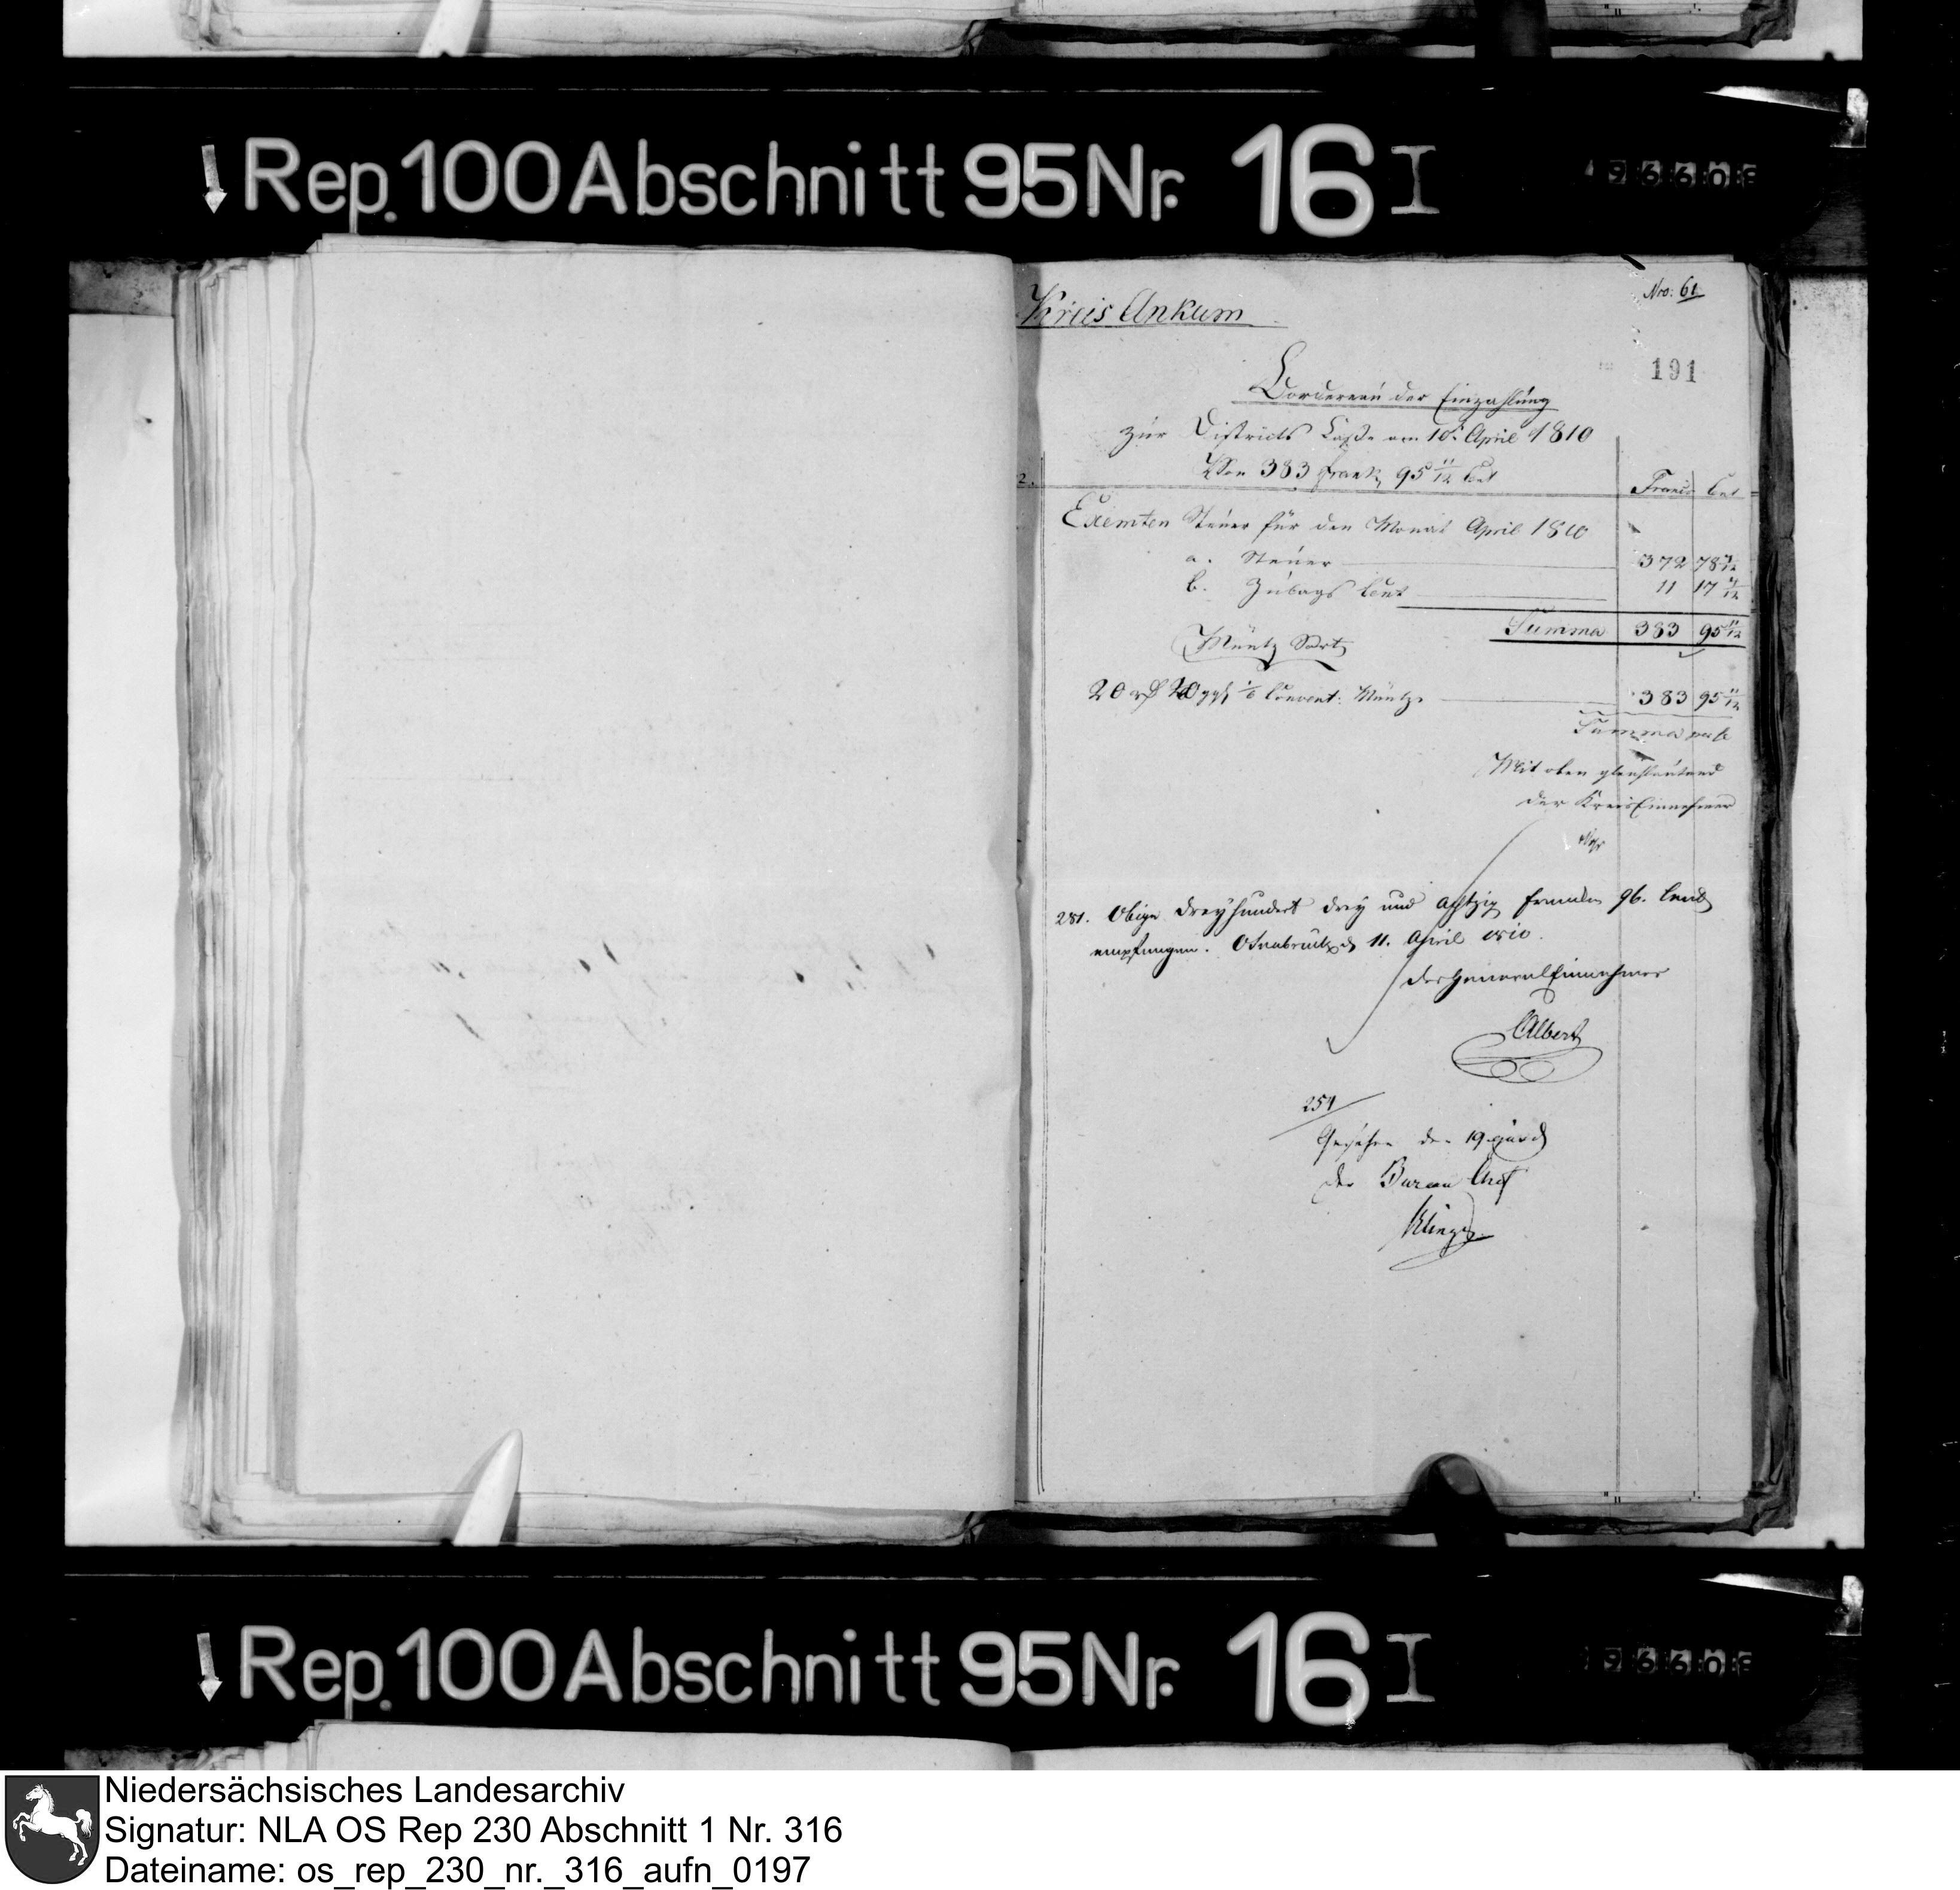 Rep. 100 Abschnitt 95 Nr. 16 I
Nro: 61
Kreis Ankum
191
Bordereau der Einzahlung
zur Districts Casse am 10t April 1810
Von 383 Frank, 95 11/12 Cent
Francs Cent
Exemten Steuer für den Monat April 1810
a. Steuer 372 78
b. Zulags Cent 11 17
Summa 383 95 11/12
Müntz Sort
20 20 ggl 1/6 Convent: Müntze 383 95 11/12
Summa
Mit oben gleichlautend
der Kreis Einnehmer
281. Obige dreyhundert drey und achtzig Franken 96. Cent
empfangen. Osnabrück d 11. April 1810.
der General Einnehmer
Albert
254
Gesehen den 19
der Bureau Chef
Rep. 100 Abschnitt 95 Nr. 16 I
Niedersächsisches Landesarchiv
Signatur: NLA OS Rep 230 Abschnitt 1 Nr. 316
Dateiname: os_rep_230_nr._316_aufn_0197